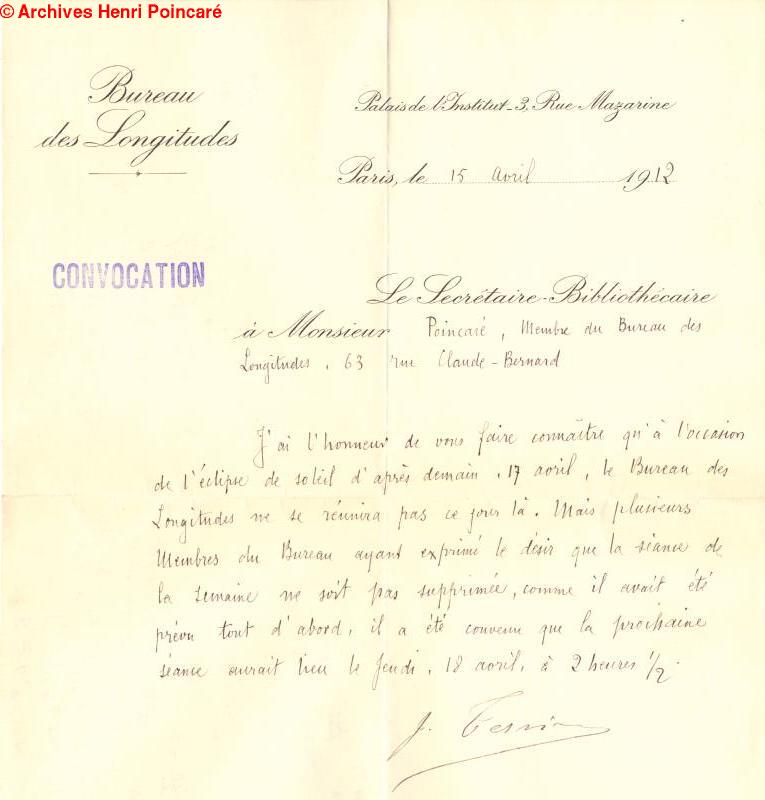 © Archives Henri Poincaré
Bureau
des Longitudes
Palais de l'Institut_3, Rue Mazarine
Paris, le 15 avril 1912
CONVOCATION
Le Secrétaire-Bibliothécaire
à Monsieur Poincaré, Membre du Bureau des
Longitudes, 63 rue Claude-Bernard
J'ai l'honneur de vous faire connaître qu'à l'occasion
de l'éclipse de soleil d'après demain, 17 avril, le Bureau des
Longitudes ne se réunira pas ce jour là. Mais plusieurs
Membres du Bureau ayant exprimé le désir que la séance de
la semaine ne soit pas supprimée, comme il avait été
prévu tout d'abord, il a été convenu que la prochaine
séance aurait lieu le Jeudi, 18 avril, à 2 heures 1/2.
J.